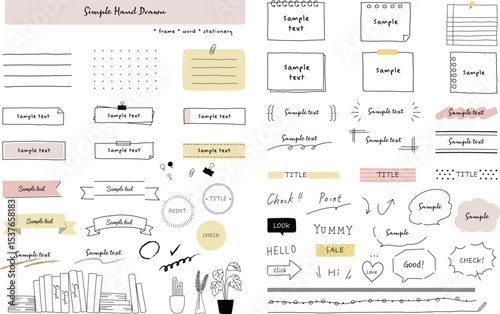 Simple Hand Drawn
• frame • word • stationery
Sample text
Sample text
Sample text
Sample text
Sample text
Sample text
Sample text
Sample text
Sample text
Sample text
Sample text
Sample text
Sample text
Sample text
POINT
TITLE
CHECK
Sample text
Sample text
Sample text
Sample text
Sample text
Sample text
Sample text
Sample text
Sample text
Sample text
Sample text
TITLE
TITLE
TITLE
Check!!
Point
Sample text
Sample text
LOOK
YUMMY
HELLO
SALE
click
Hi
Love
Good!
CHECK!
Adobe Stock | #1537658183